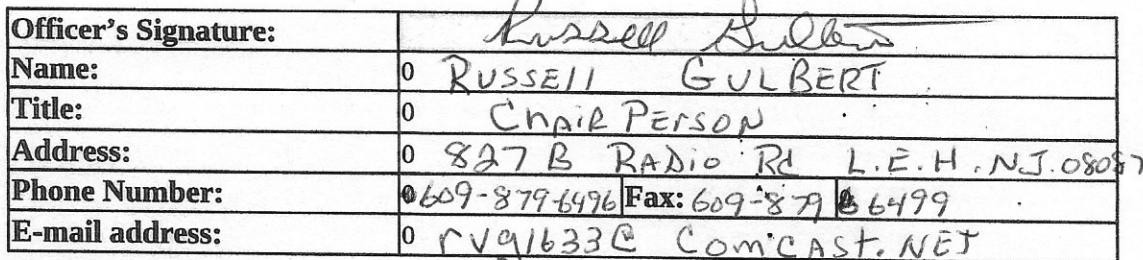 Officer's Signature: Russell Gulbert
Name: 0 RUSSEll GULBERT
Title: 0 ChAiR PERSON
Address: 0 827 B RADio Rd L.E.H. NJ. 08087
Phone Number: 0 609-879-6496 Fax: 609-879 6499
E-mail address: 0 rvg1633@ ComCASt. NET